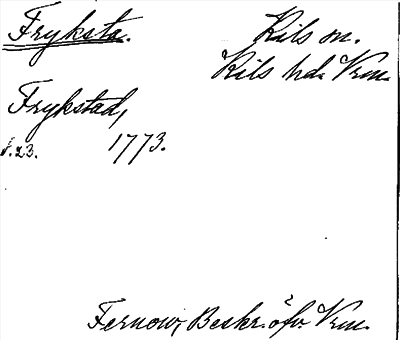 Fryksta.
Kils sn.
Kils hd. Vrm.
Frykstad,
s. 23.
1773.
Fernow, Beskr. öfv. Vrm.